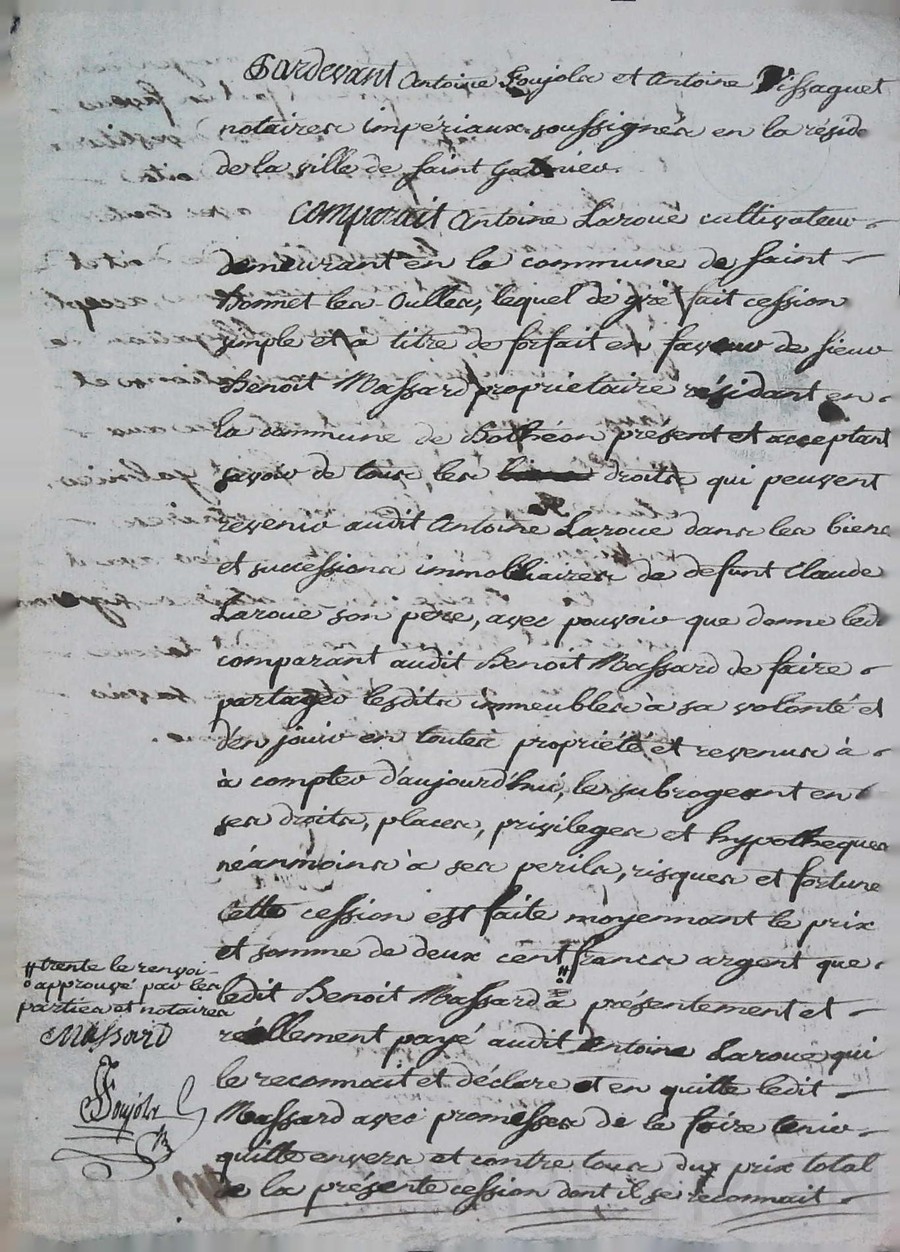 Pardevant Antoine Poujola et Antoine Vissaguet
notaires impériaux soussignés en la réside
de la ville de Saint Galmier.
Comparait Antoine Laroue cultivateur
demeurant en la commune de Saint
Bonnet les Oulles, lequel de gré fait cession
simple et à titre de forfait en faveur de sieur
Benoit Massard propriétaire résidant en
la commune de Bothéon présent et acceptant
savoir de tous les droits qui peuvent
revenir audit Antoine Laroue dans les biens
et successions immobliaires de defunt Claude
Laroue son père, avec pouvoir que donne led
comparant audit Benoit Massard de faire
partager lesdits immeubles à sa volonté et
d'en jouir en toutes propriété et revenus à
à compter d'aujourd'hui, le subrogeant en
ses droits, places, privileges et hypotheques
néanmoins à ses perils, risques et fortune
Cette cession est faite moyennant le prix
et somme de deux cent francs argent que
ledit Benoit Massard a présentement et
réellement payé audit Antoine Laroue qui
le reconnait et déclare et en quitte ledit
Massard avec promesses de la faire tenir
quitte envers et contre tous du prix total
de la présente cession dont il se reconnait
trente le renvoi
approuvé par les
parties et notaires
Massard
Poujola